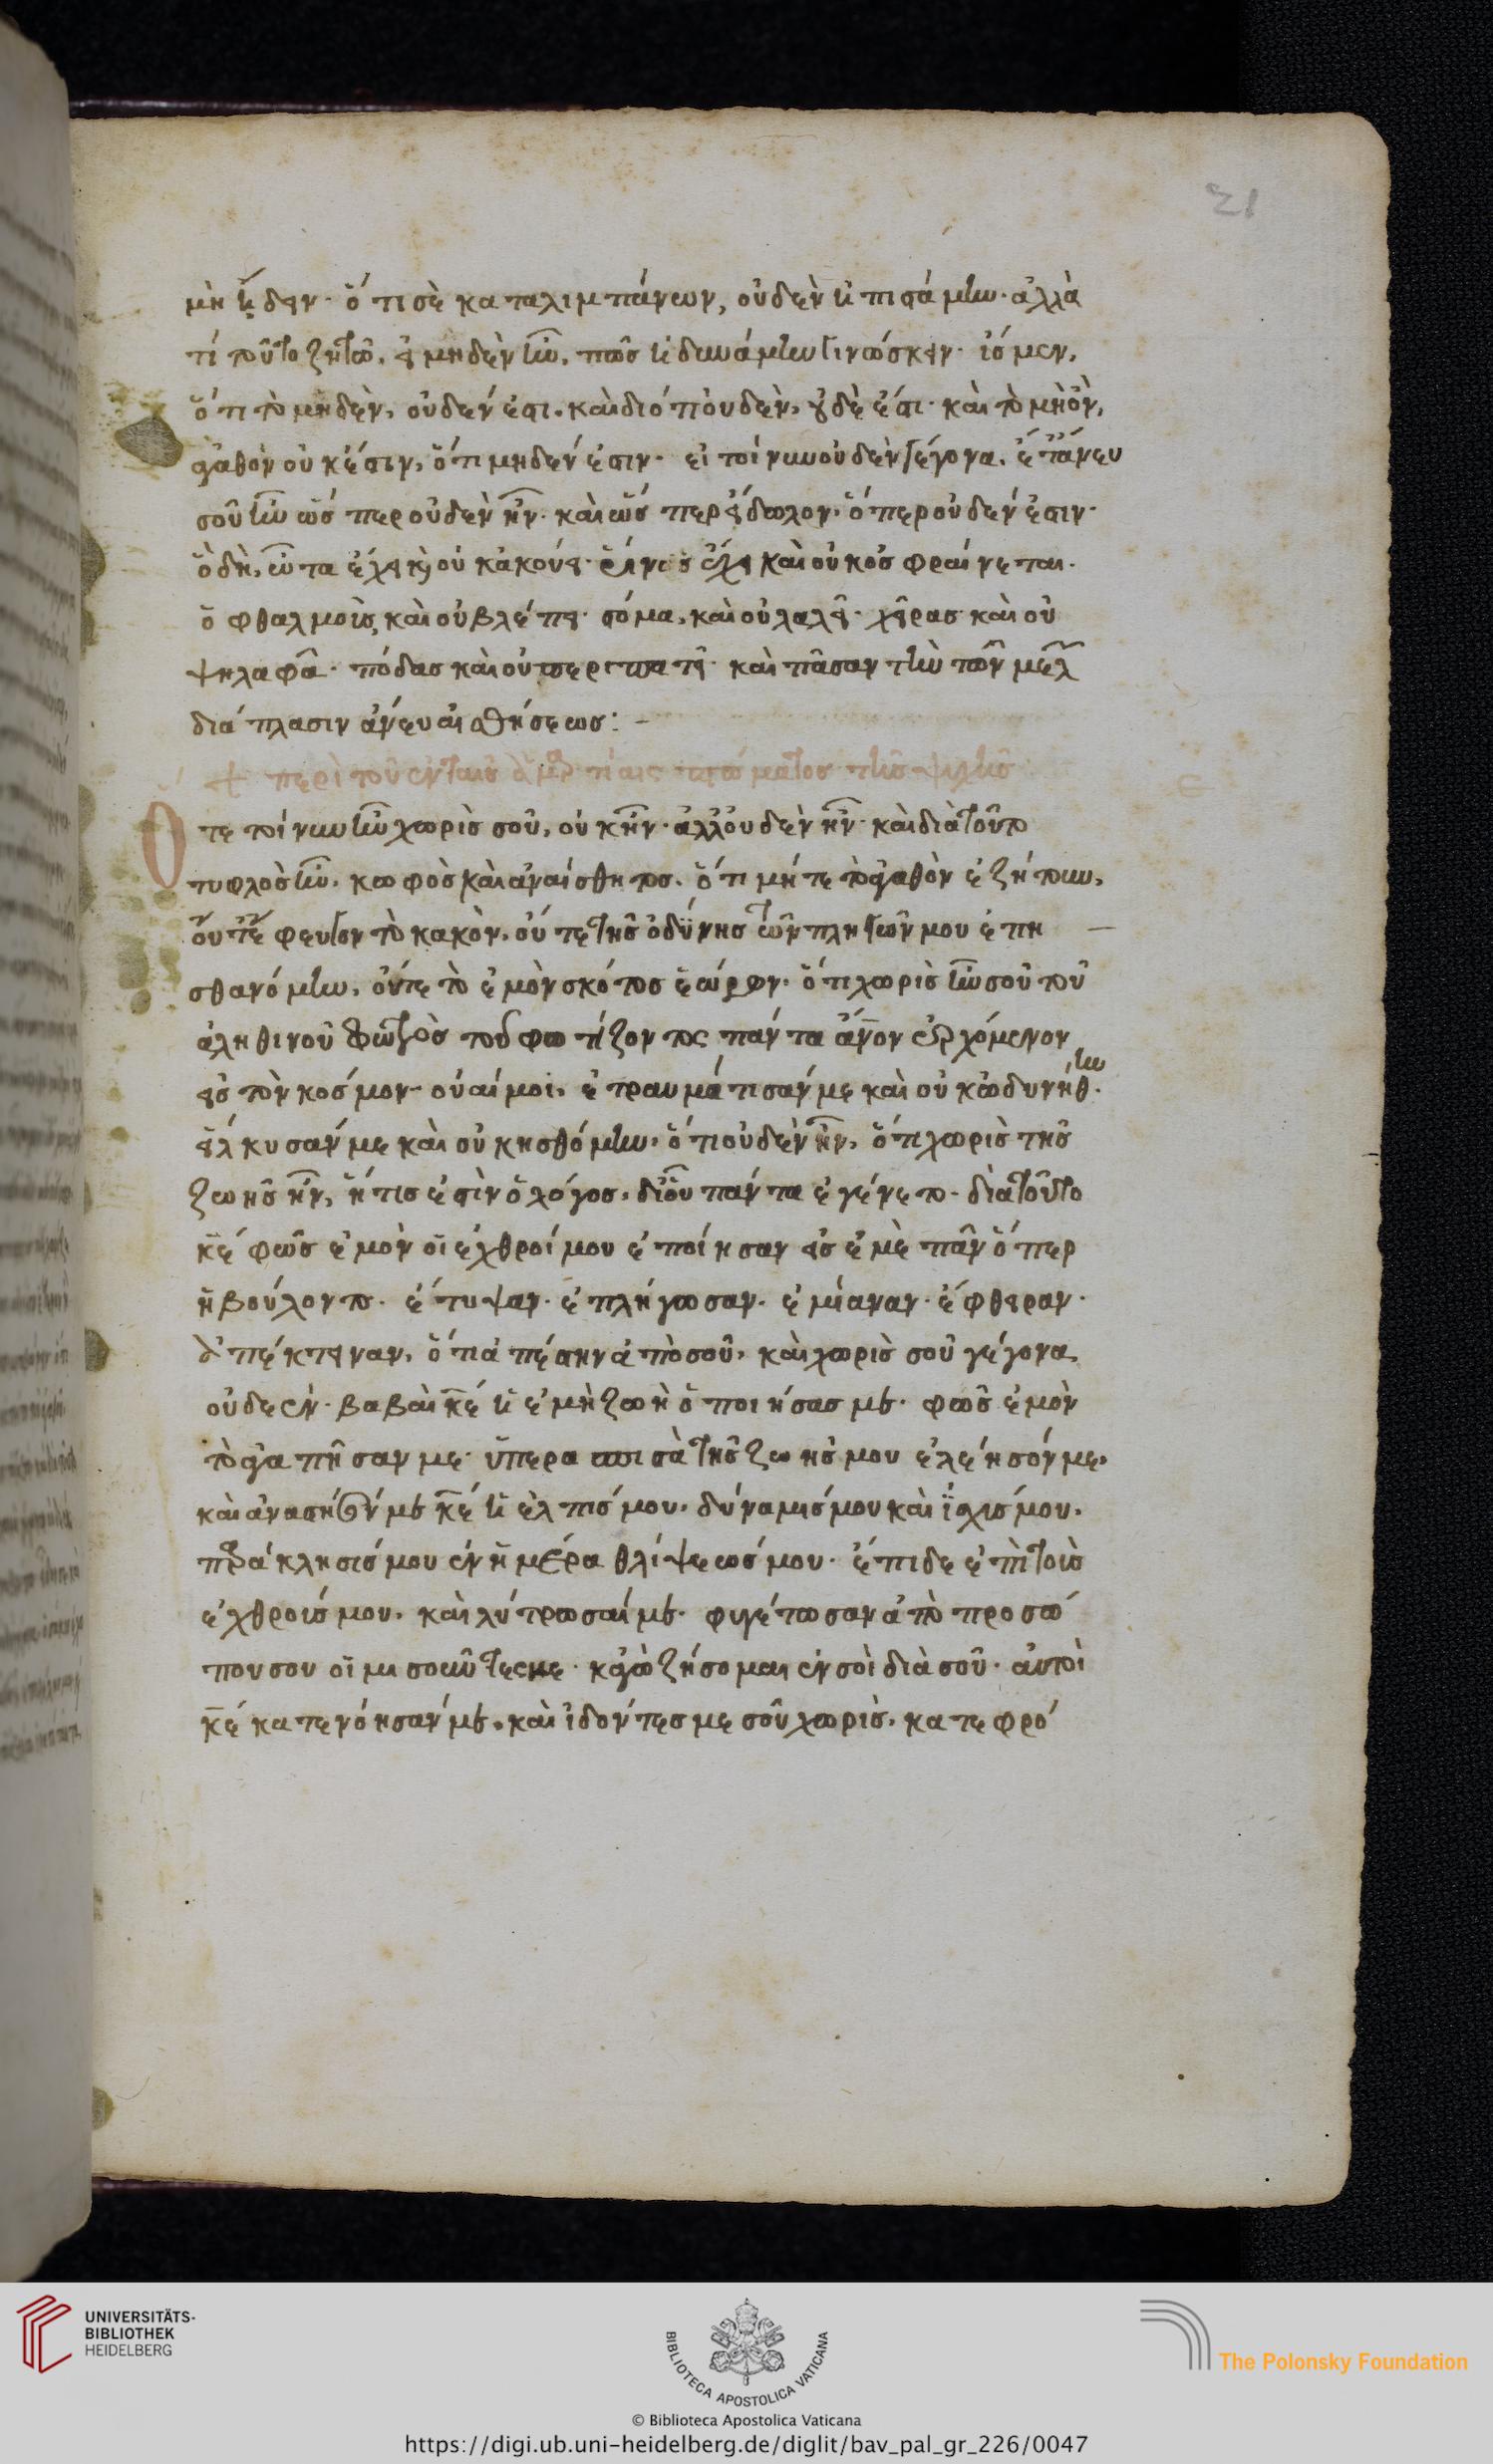 21
μὴ εἶδεν· ὅτι σὲ καταλιμπάνων, οὐδὲν ἠπιστάμην· ἀλλὰ
τί τοῦτο ζητῶ, εἰ μηδὲν ἦν, πῶς ἠδυνάμην γινώσκειν· ἴσμεν,
ὅτι τὸ μηδὲν, οὐδέν ἐστι. καὶ διότι οὐδὲν, οὐδὲ ἔστι· καὶ τὸ μὴ ὂν,
ἀγαθὸν οὐκ ἔστιν, ὅτι μηδέν ἐστιν· εἰ τοίνυν οὐδὲν γέγονα, ἄνευ
σοῦ ἦν ὥσπερ οὐδὲν ἦν· καὶ ὥσπερ εἴδωλον, ὅπερ οὐδέν ἐστιν·
ὃ δὴ, ὦτα ἔχει καὶ οὐκ ἀκούει· ῥῖνας ἔχει καὶ οὐκ ὀσφραίνεται·
ὀφθαλμοὺς καὶ οὐ βλέπει· στόμα, καὶ οὐ λαλεῖ· χεῖρας καὶ οὐ
ψηλαφᾶ· πόδας καὶ οὐ περιπατεῖ· καὶ πᾶσαν τὴν τῶν μελ
διάπλασιν ἄνευ αἰσθήσεως: –
+ περὶ τοῦ ἐν ταῖς ἁμρτίαις πτώματος τῆς ψυχῆς
ε
Ὅτε τοίνυν ἦν χωρὶς σοῦ, οὐκ ἦν· ἀλλ' οὐδὲν ἦν· καὶ διὰ τοῦτο
τυφλὸς ἦν, κωφὸς καὶ ἀναίσθητος. ὅτι μήτε τὸ ἀγαθὸν ἐζήτουν,
οὔτε ἔφευγον τὸ κακὸν, οὔτε τῆς ὀδύνης τῶν πληγῶν μου ἐπη –
σθανόμην, οὔτε τὸ ἐμὸν σκότος ἑώρων· ὅτι χωρὶς ἦν σοῦ τοῦ
ἀληθινοῦ φωτὸς τοῦ φωτίζοντος πάντα ἄνον ἐρχόμενον
εἰς τὸν κόσμον· οὐαί μοι, ἐτραυμάτισάν με καὶ οὐκ ὠδυνήθην·
εἵλκυσάν με καὶ οὐκ ᾐσθόμην, ὅτι οὐδὲν ἦν, ὅτι χωρὶς τῆς
ζωῆς ἦν, ἥτις ἐστὶν ὁ λόγος, δι' οὗ πάντα ἐγένετο· διὰ τοῦτο
κε φῶς ἐμὸν οἱ ἐχθροί μου ἐποίησαν εἰς ἐμὲ πᾶν ὅπερ
ἠβούλοντο· ἔτυψαν· ἐπλήγωσαν· ἐμίαναν· ἔφθειραν·
ἀπέκτειναν, ὅτι ἀπέστην ἀπὸ σοῦ, καὶ χωρὶς σοῦ γέγονα
οὐδέν· βαβαὶ κε ἡ ἐμὴ ζωὴ ὁ ποιήσας με· φῶς ἐμὸν
τὸ ἀγαπῆσαν με· ὑπερασπιστὰ τῆς ζωῆς μου ἐλέησόν με,
καὶ ἀνάστησόν με κε ἡ ἐλπίς μου, δύναμίς μου καὶ ἰσχίς μου,
παράκλησίς μου ἐν ἡμέρα θλίψεώς μου· ἔπιδε ἐπὶ τοῖς
ἐχθροῖς μου, καὶ λύτρωσαί με· φυγέτωσαν ἀπὸ προσώ
που σου οἱ μισοῦντες με· κἀγὼ ζήσομαι ἐν σοὶ διὰ σοῦ· αὐτοὶ
κε κατενόησάν με, καὶ ἰδόντες με σοῦ χωρὶς, κατεφρό
UNIVERSITÄTS-
BIBLIOTHEK
HEIDELBERG
BIBLIOTECA APOSTOLICA VATICANA
The Polonsky Foundation
© Biblioteca Apostolica Vaticana
https://digi.ub.uni-heidelberg.de/diglit/bav_pal_gr_226/0047